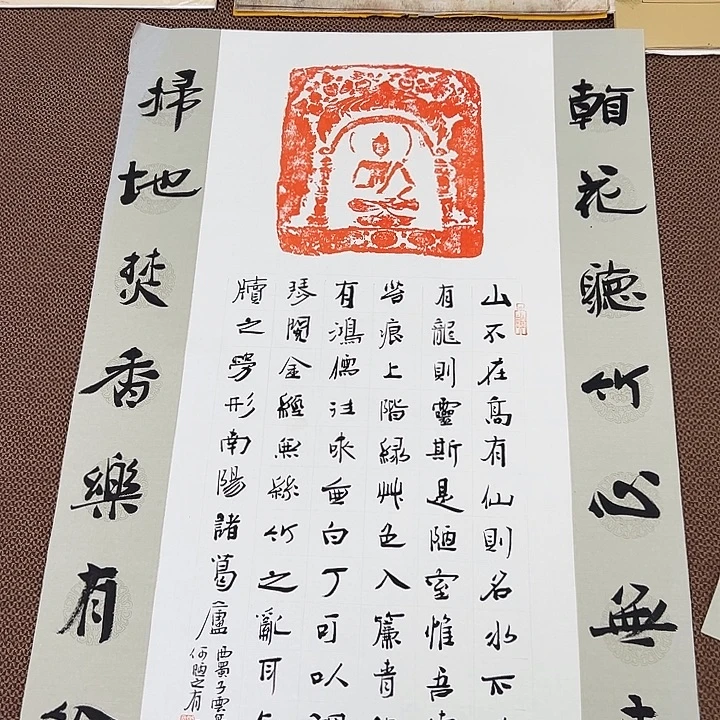 頼花聽竹心無
山不在高有仙則名水不
有龍則靈斯是陋室惟吾
苔痕上階緑艸色入簾青
有鴻儒往來無白丁可以調
琴閲金經無絲竹之亂耳
牘之勞形南陽諸葛廬
西蜀子雲
何陋之有
掃地焚香樂有